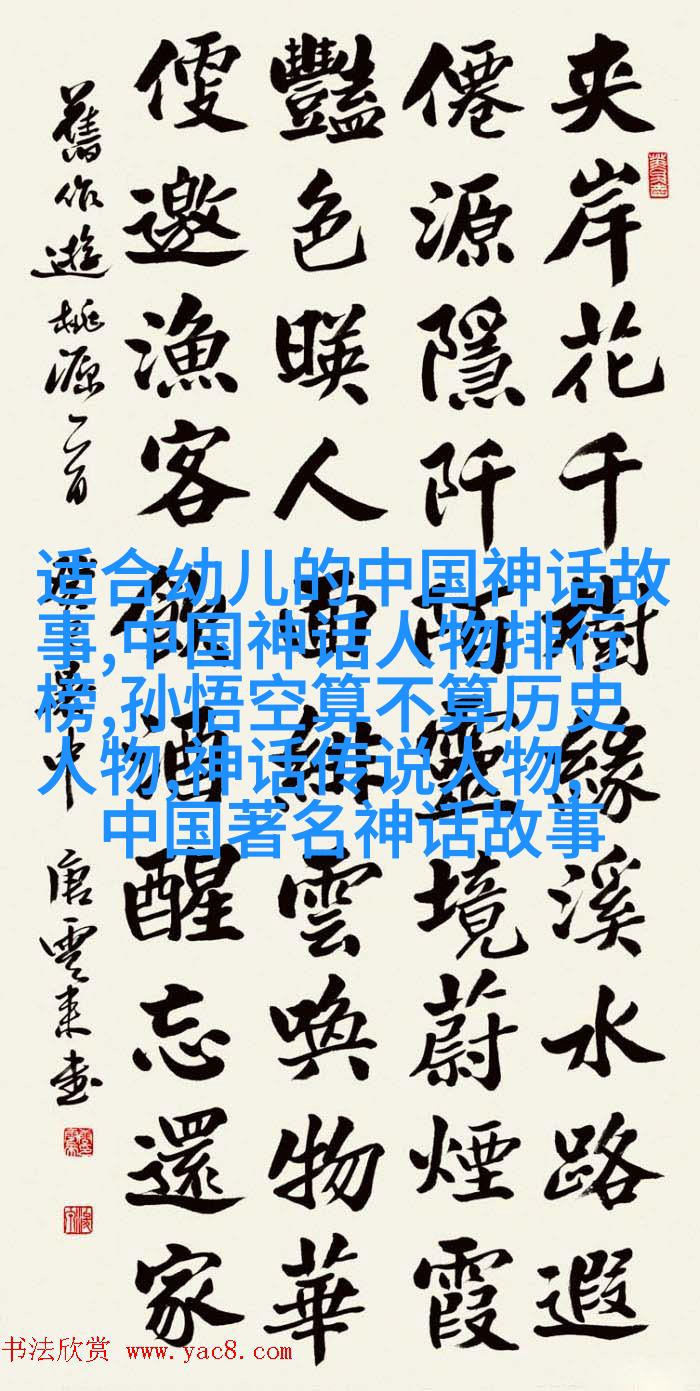 夹岸花千樹緣溪水路遐
僊源隱阡靈境蔚煙霞
豔色暎人面雲喚物華
便邀漁客酒醒忘還家
舊作遊桃源二首
中 唐雲来書
适合幼儿的中国神话故
事,中国神话人物排行
榜,孙悟空算不算历史
人物,神话传说人物,
中国著名神话故事
书法欣赏 www.yac8.com